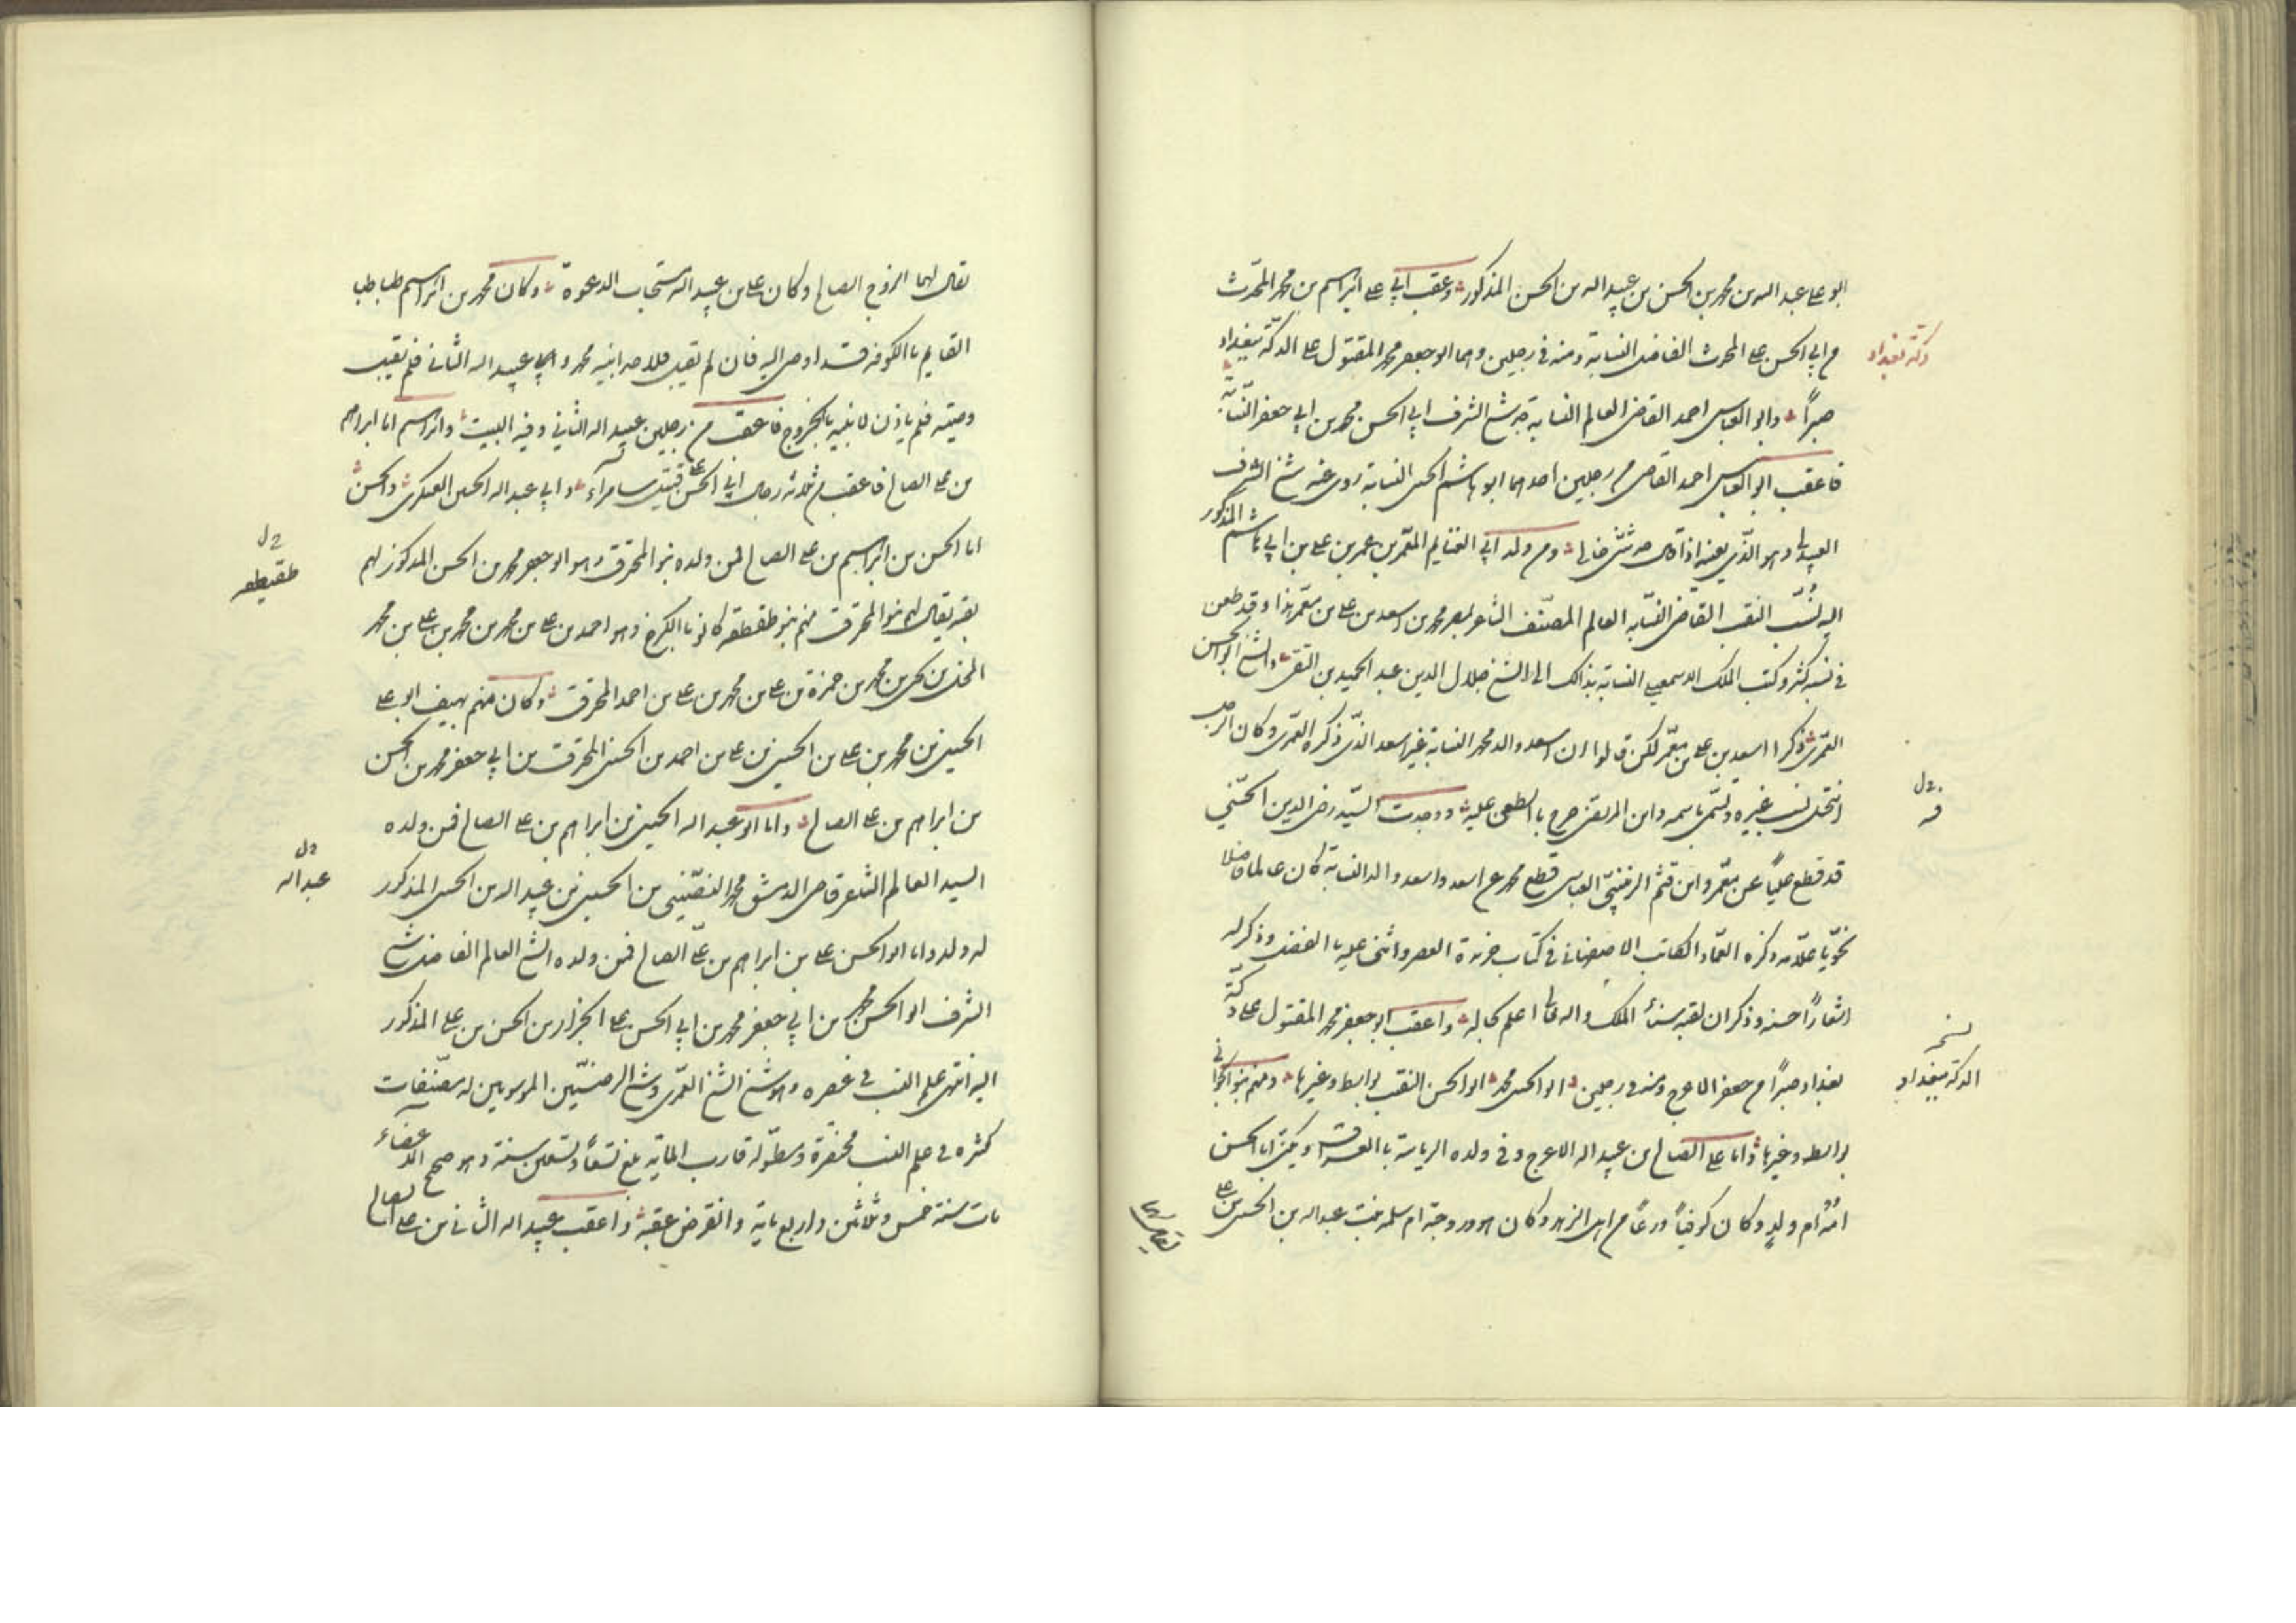 ابو علي عبد الله بن محمد بن الحسن بن عبيد الله بن الحسن المذكور وعقب ابي علي ابراهيم بن محمد المحدث
من ابي الحسن علي المحدث الفاضل النسابة ومنه في رجلين وهما ابو جعفر محمد المقتول على الدكة ببغداد
دكة بغداد
صبراً وابو العباس احمد القاضي العالم النسابة شيخ الشرف ابي الحسن محمد بن ابي جعفر النسابة
فاعقب ابو العباس احمد القاضي من رجلين احدهما ابو هاشم الحسن النسابة روى عنه شيخ الشرف
العبيدلي وهو الذي يعنيه اذا قال حدثني خالي ومن ولد ابي الغنايم المعمر بن عمر بن علي بن ابي هاشم المذكور
اليه نُسب النقيب القاضي النسابه العالم المصنف الشاعر بمصر محمد بن اسعد بن علي بن معمر هذا وقد طعن
في نسبه كثير وكتب الملك النسابة بذالك الى الشيخ جلال الدين عبد الحميد بن التقي والشيخ ابو الحسن
العمري ذكرا اسعد بن علي بن معمر لكن قالوا ان اسعد والد محمد النسابة غير اسعد الذي ذكره العمري وكان الرجل
انتحل نسب غيره وتسمى باسمه وابن المرتضى صرح بالطعن عليه ووجدت السيد رضي الدين الحسني
قد قطع علياً عن معمر وابن قثم الزينبي العباسي قطع محمد عن اسعد واسعد والد النسابة كان عالما فاضلا
نحويا علامه ذكره العماد الكاتب الاصفهاني في كتاب خريدة العصر واثنى عليه بالفضل وذكر له
اشعاراً حسنه وذكر ان لقبه سناء الملك والله تعالى اعلم بحاله واعقب ابو جعفر محمد المقتول على دكة
بغداد صبراً من جعفر الاعرج ومنه في رجلين ابو الحسن محمد ابو الحسن النقيب بواسط وغيرها ومنهم بنو
نسخه
الدكة ببغداد
بواسط وغيرها واما علي الصالح بن عبيد الله الاعرج وفي ولده الرياسة بالعراق ويكنى ابا الحسن
امه ام ولد وكان كوفياً ورعاً من اهل الزهد وكان هو وزوجته ام سلمه بنت عبد الله بن الحسين بن علي
يقال لهما الزوج الصالح وكان علي بن عبيد الله مستجاب الدعوة وكان محمد بن ابراهيم طباطبا
القايم بالكوفه قد اوصى اليه فان لم يقبل فلاحد ابنيه محمد وعبيد الله الثاني فلم يقبل
وصيته فلم ياذن لابنيه بالخروج فاعقب من رجلين عبيد الله الثاني وفيه البيت وابراهيم اما ابراهيم
بن علي الصالح فاعقب من ثلاثة رجال ابي الحسن علي قتيل سامراء وابي عبد الله الحسين العسكري والحسن
اما الحسن بن ابراهيم بن علي الصالح فمن ولده بنو المحترق وهو ابو جعفر محمد بن الحسن المذكور لهم
بقيه يقال لهم بنو المحترق منهم بنو طقطقه كانوا بالكرخ وهو احمد بن علي بن محمد بن محمد بن علي بن محمد
طقيطقه
بن محمد بن حمزة بن علي بن محمد بن علي بن احمد المحترق وكان منهم ابو علي
الحسين بن محمد بن علي بن الحسين بن علي بن احمد بن الحسن المحترق بن ابي جعفر محمد بن الحسن
بن ابراهيم بن علي الصالح واما ابو عبد الله الحسين بن ابراهيم بن علي الصالح فمن ولده
السيد العالم الشاعر قاضي الدمشق محمد النصيبيني بن الحسين بن عبيد الله بن الحسين المذكور
عبد الله
له ولد واما ابو الحسن علي بن ابراهيم بن علي الصالح فمن ولده الشيخ العالم الفاضل شيخ
الشرف ابو الحسن محمد بن ابي جعفر محمد بن ابي الحسن علي الجزار بن الحسن بن علي المذكور
اليه انتهى علم النسب في عصره وهو شيخ الشيخ العمري وشيخ الرضيين الموسويين له مصنفات
كثيره في علم النسب مختصرة ومطوله قارب المايه بلغ تسعاً وتسعين سنة وهو صحيح الاعضاء
مات سنة خمس وثلاثين واربع ماية وانقرض عقبه واعقب عبيد الله الثاني بن علي الصالح